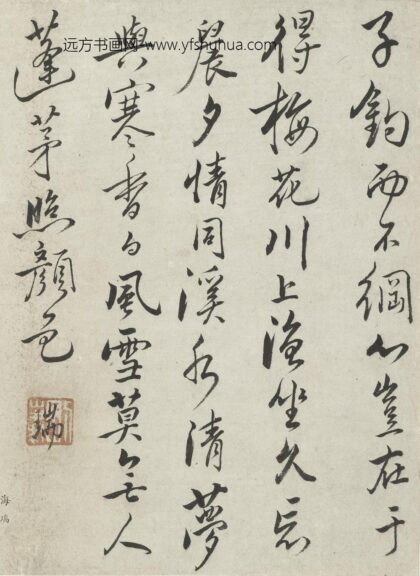 子釣而不綱心豈在于
得梅花川上漁坐久忘
晨夕情同溪水清夢
與寒香白風雪莫人
蓬茅照顏色
瑞
海瑞
远方书画网 www.yfshuhua.com